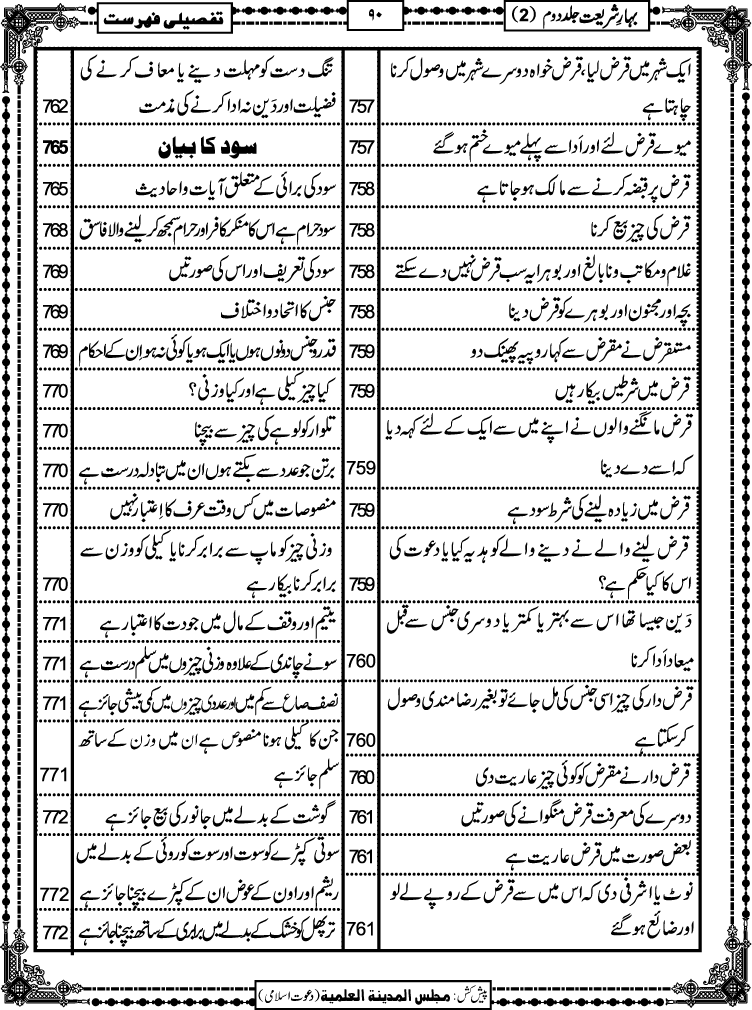 بہارِشریعت جلد دوم (2)
۹۰
تفصیلی فہرست
ایک شہر میں قرض لیا، قرض خواہ دوسرے شہر میں وصول کرنا
چاہتا ہے 757
میوے قرض لئے اور اَدا سے پہلے میوے ختم ہوگئے 757
قرض پر قبضہ کرنے سے مالک ہوجاتا ہے 758
قرض کی چیز بیع کرنا 758
غلام و مکاتب و نابالغ اور بوہرا یہ سب قرض نہیں دے سکتے 758
بچہ اور مجنون اور بوہرے کو قرض دینا 758
مستقرض نے مقرض سے کہا روپیہ پھینک دو 759
قرض میں شرطیں بیکار ہیں 759
قرض مانگنے والوں نے اپنے میں سے ایک کے لئے کہہ دیا
کہ اسے دے دینا 759
قرض میں زیادہ لینے کی شرط سود ہے 759
قرض لینے والے نے دینے والے کو ہدیہ کیا یا دعوت کی
اس کا کیا حکم ہے؟ 759
دَین جیسا تھا اس سے بہتر یا کمتر یا دوسری جنس سے قبل
میعاد اَدا کرنا 760
قرض دار کی چیز اسی جنس کی مل جائے تو بغیر رضا مندی وصول
کرسکتا ہے 760
قرض دار نے مقرض کو کوئی چیز عاریت دی 760
دوسرے کی معرفت قرض منگوانے کی صورتیں 761
بعض صورت میں قرض عاریت ہے 761
نوٹ یا اشرفی دی کہ اس میں سے قرض کے روپے لے لو
اور ضائع ہوگئے 761
تنگ دست کو مہلت دینے یا معاف کرنے کی
فضیلت اور دَین نہ ادا کرنے کی مذمت 762
سود کا بیان 765
سود کی برائی کے متعلق آیات و احادیث 765
سود حرام ہے اس کا منکر کافر اور حرام سمجھ کر لینے والا فاسق 768
سود کی تعریف اور اس کی صورتیں 769
جنس کا اتحاد و اختلاف 769
قدر و جنس دونوں ہوں یا ایک ہو یا کوئی نہ ہو اِن کے احکام 769
کیا چیز کیلی ہے اور کیا وزنی؟ 770
تلوار کو لوہے کی چیز سے بیچنا 770
برتن جو عدد سے بکتے ہوں ان میں تبادلہ درست ہے 770
منصوصات میں کس وقت عرف کا اِعتبار نہیں 770
وزنی چیز کو ماپ سے برابر کرنا یا کیلی کو وزن سے
برابر کرنا بیکار ہے 770
یتیم اور وقف کے مال میں جودت کا اعتبار ہے 771
سونے چاندی کے علاوہ وزنی چیزوں میں سلم درست ہے 771
نصف صاع سے کم میں اور عددی چیزوں میں کمی بیشی جائز ہے 771
جن کا کیلی ہونا منصوص ہے ان میں وزن کے ساتھ
سلم جائز ہے 771
گوشت کے بدلے میں جانور کی بیع جائز ہے 772
سوتی کپڑے کو سوت اور سوت کو روئی کے بدلے میں
ریشم اور اون کے عوض ان کے کپڑے بیچنا جائز ہے 772
تر پھل کو خشک کے بدلے میں برابری کے ساتھ بیچنا جائز ہے 772
پیش کش: مجلس المدینة العلمیة (دعوتِ اسلامی)